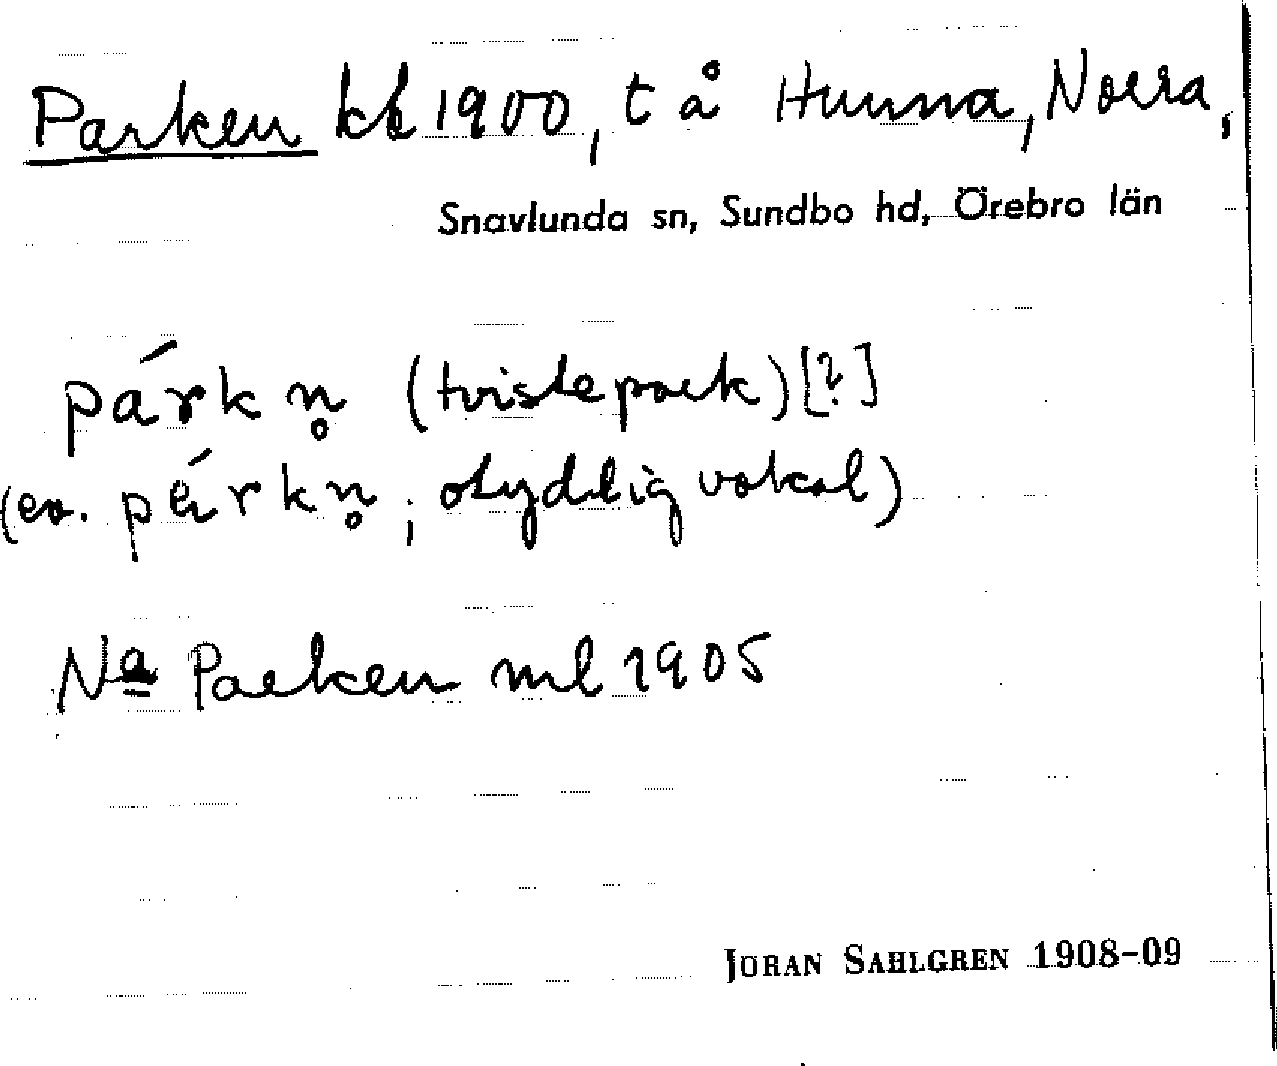 Parken kb 1900, t å Hunna, Norra,
Snavlunda sn, Sundbo hd, Örebro län
párkn̥ (tvistepark) [?]
(ev. pérkn̥; otydlig vokal)
Na Parken ml 1905
JÖRAN SAHLGREN 1908-09